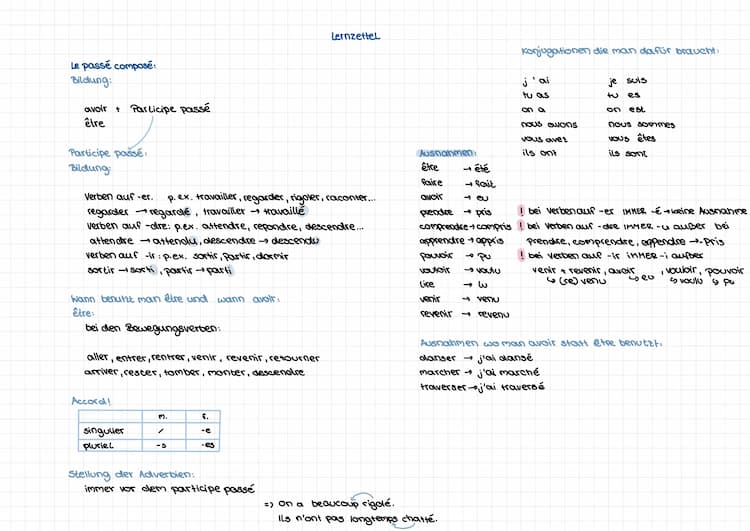 Lernzettel
Le passé composé:
Bildung:
avoir + Participe passé
être
Participe passé:
Bildung:
Verben auf -er. p.ex. travailler, regarder, rigoler, raconter...
regarder → regardé, travailler → travaillé
verben auf -dre: p.ex. attendre, repondre, descendre...
attendre → attendu, descendre → descendu
verben auf -ir: p.ex. sortir, partir, dormir
sortir → sorti, partir → parti
Wann benutzt man être und wann avoir:
être:
bei den Bewegungsverben:
aller, entrer, rentrer, venir, revenir, retourner
arriver, rester, tomber, monter, descendre
Accord!
m. f.
singulier / -e
pluriel -s -es
Stellung der Adverbien:
immer vor dem participe passé
=> On a beaucoup rigolé.
Ils n'ont pas longtemps chatté.
Konjugationen die man dafür braucht:
j'ai je suis
tu as tu es
on a on est
nous avons nous sommes
vous avez vous êtes
ils ont ils sont
Ausnahmen:
être → été
faire → fait
avoir → eu
prendre → pris
comprendre → compris
apprendre → appris
pouvoir → pu
vouloir → voulu
lire → lu
venir → venu
revenir → revenu
! bei verben auf -er IMMER -é → keine Ausnahme
! bei verben auf -dre IMMER -u außer bei
prendre, comprendre, appendre → -pris
! bei verben auf -ir IMMER -i außer
venir + revenir, avoir, vouloir, pouvoir
↳ (re)venu ↳ eu ↳ voulu ↳ pu
Ausnahmen wo man avoir statt être benutzt:
danser → j'ai dansé
marcher → j'ai marché
traverser → j'ai traversé